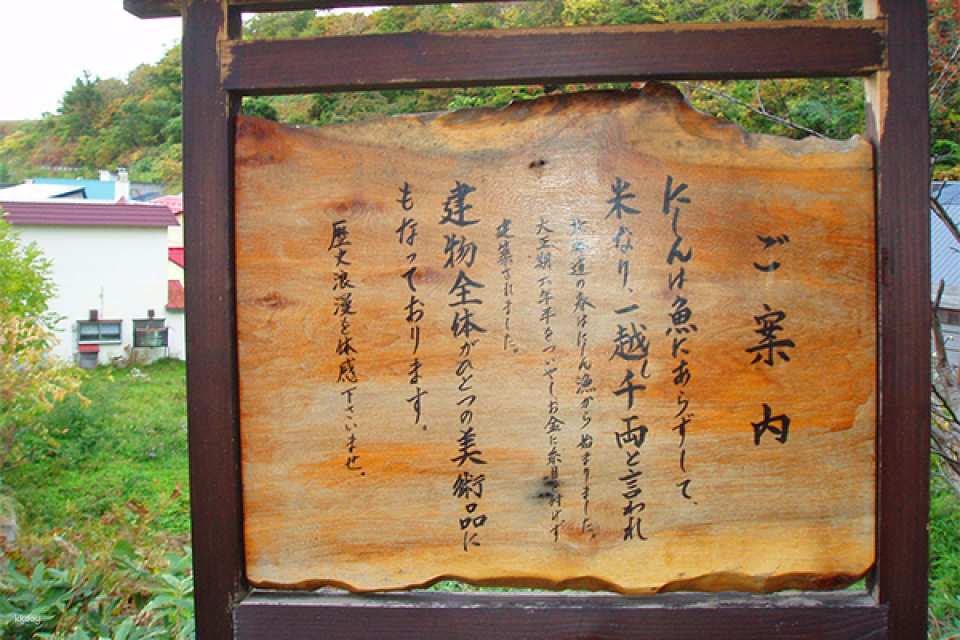 ご案内
にしんは魚にあらずして、
米なり、一越し千両と言われ
北海道の春はにしん漁から始まりました。
大正期六年半をついやしお金に糸目を付けず
建築されました。
建物全体がひとつの美術品に
もなっております。
歴史浪漫を体感下さいませ。
kkday